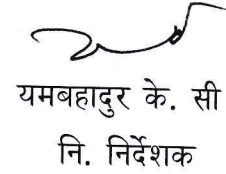 यमबहादुर के. सी
नि. निर्देशक